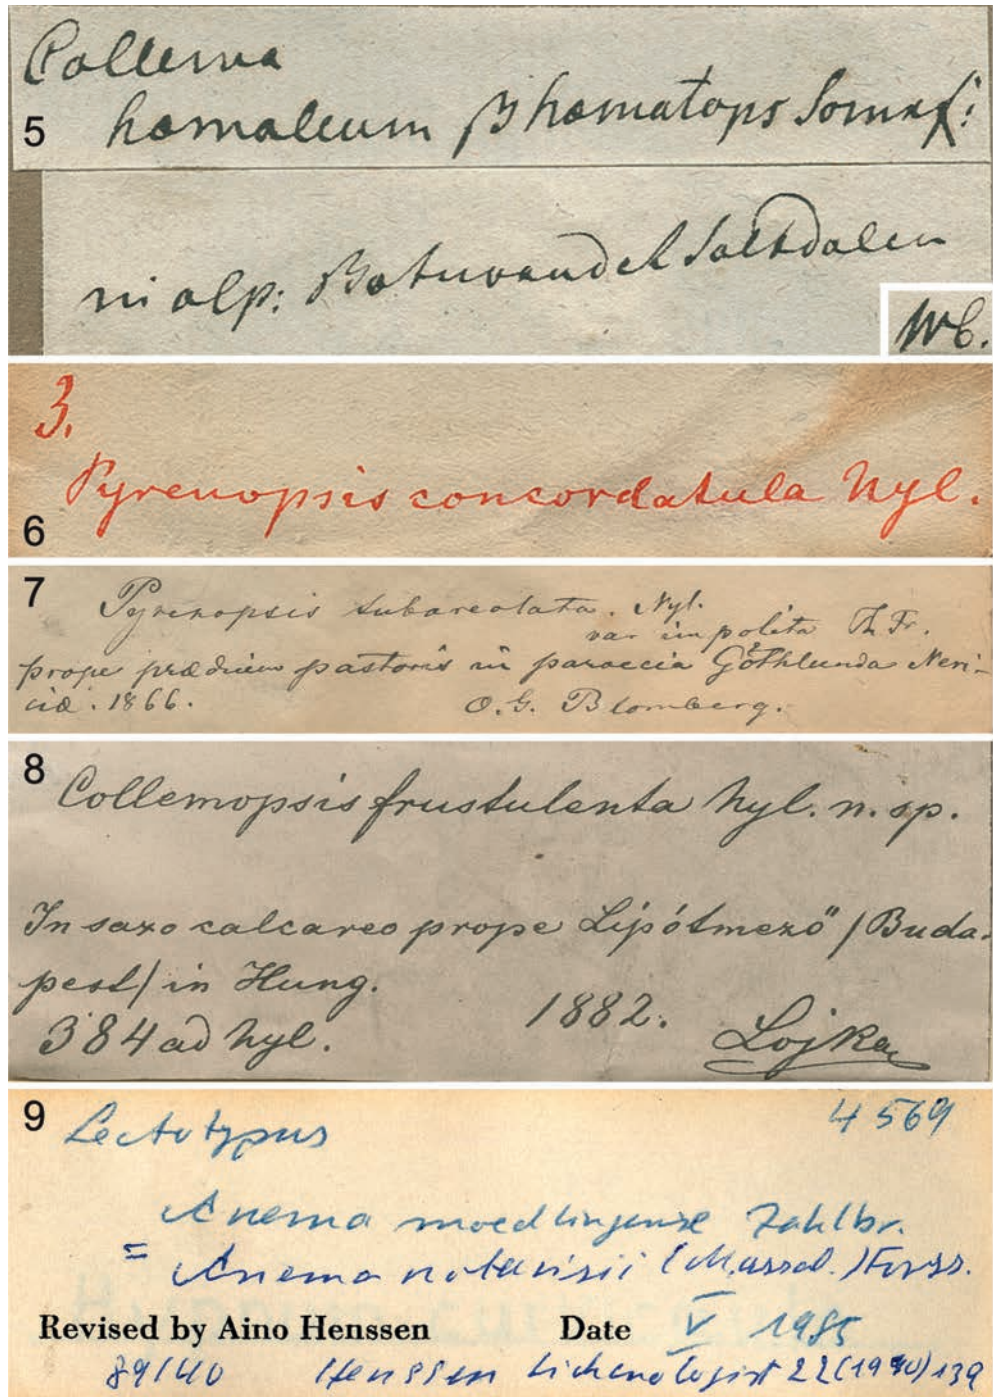 Collema
5 hæmaleum β hæmatops Sommf:
in alp: Botnvandet Saltdalen
Wb.
3.
Pyrenopsis concordatula Nyl.
6
7 Pyrenopsis subareolata. Nyl.
var impolita Th Fr.
prope prædium pastoris in paroecia Göthlunda Neri-
ciæ. 1866. O. G. Blomberg.
8 Collemopsis frustulenta Nyl. n. sp.
In saxo calcareo prope Lipótmező / Buda-
pest / in Hung.
384 ad Nyl. 1882. Lojka
9 Lectotypus 4569
Anema moedlingense Zahlbr.
= Anema notarisii (Massal.) Forss.
Revised by Aino Henssen Date V 1985
89/40 Henssen Lichenologist 22 (1990) 139